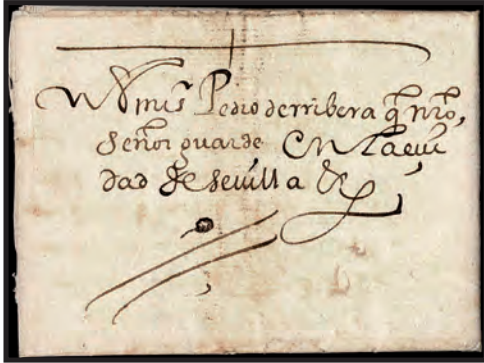 Pedro de rribera q̃ nro,
señor guarde En la ciu
dad de seuilla &